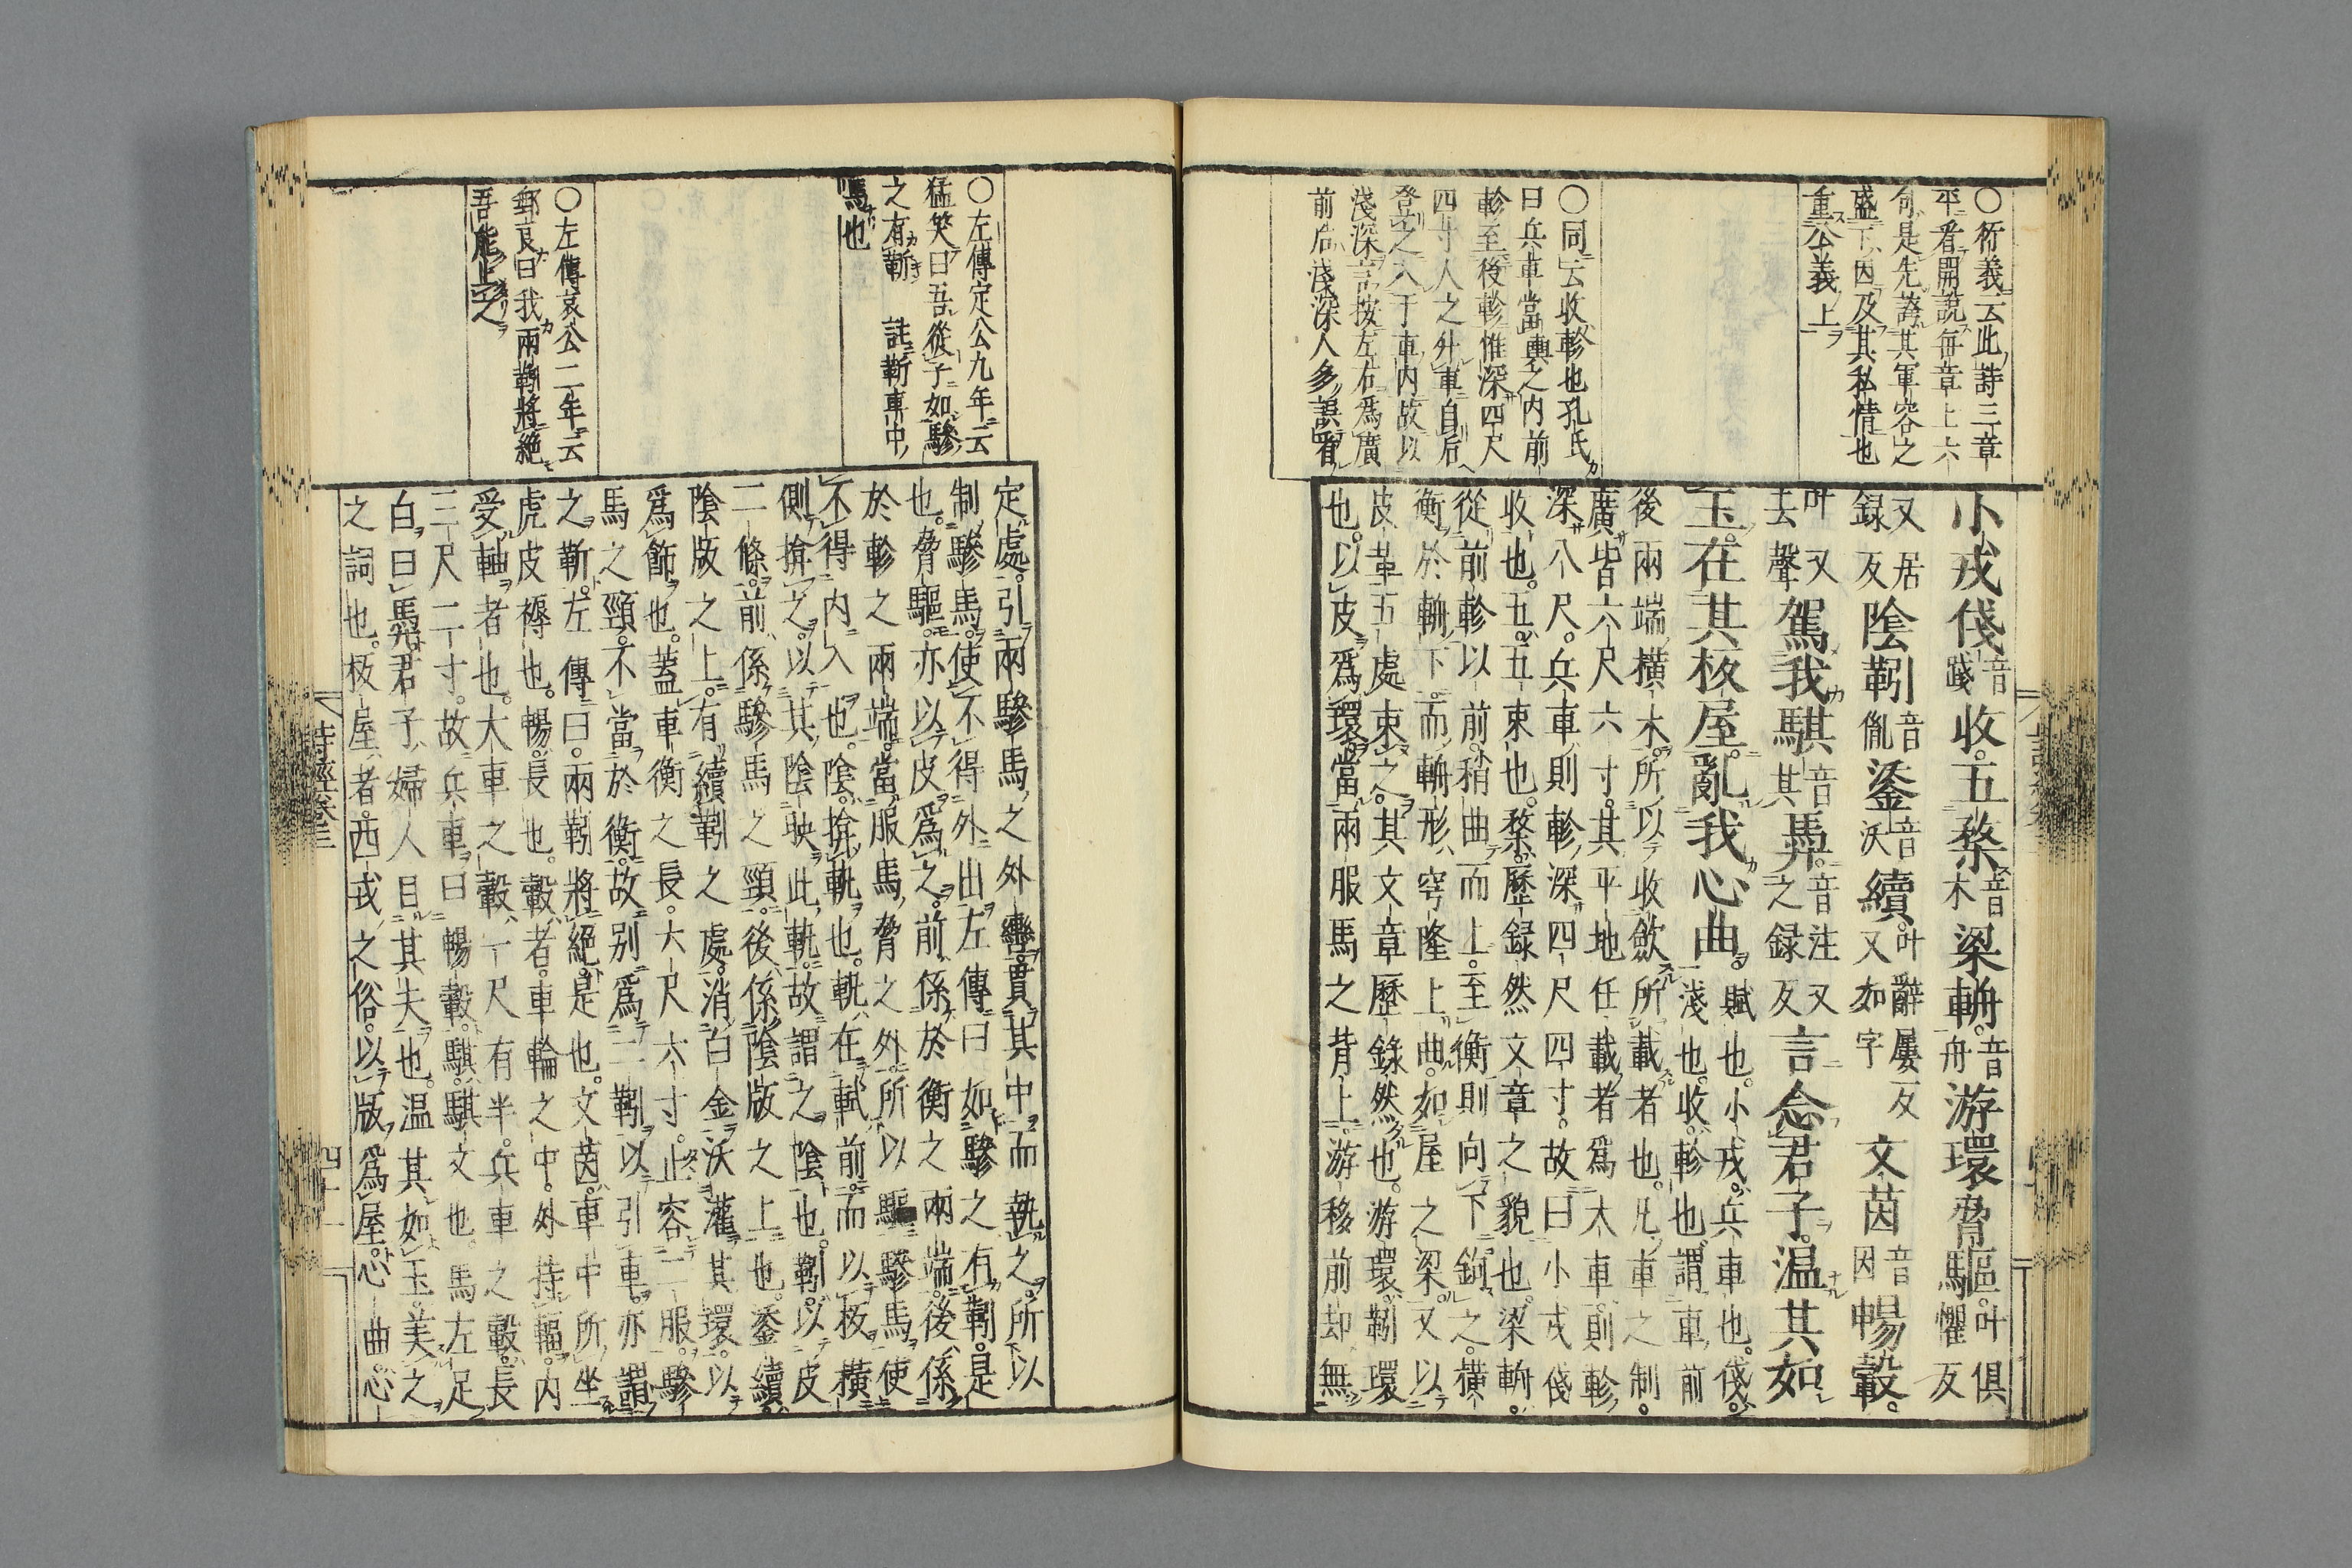 ○衍義云此詩三章
平看開說每章上六
句是先誇其軍容之
盛下因及其私情也
重公義上
○同云收軫也孔氏
曰兵車當輿之内前
軫至後軫惟深四尺
四寸人之外車自后
登之入于車内故以
淺深言按左右爲廣
前后淺深人多誤看
小戎俴音踐收。五楘音木梁輈。音舟游環脅驅。叶俱懼反
又居録反陰靷音胤鋈音沃續。叶辭屢反又如字文茵音因暢轂。
叶又去聲駕我騏音其馵。音注又之録反言念君子。温其如
玉。在其板屋。亂我心曲。賦也。小戎。兵車也。俴。淺也。收。軫也。謂車前
後兩端橫木。所以收歛所載者也。凡車之制。
廣皆六尺六寸。其平地任載者爲大車。則軫
深八尺。兵車則軫深四尺四寸。故曰小戎俴
收也。五。五束也。楘。歷録然文章之貌也。梁輈。
從前軫以前。稍曲而上。至衡則向下鉤之。横
衡於輈下。而輈形穹隆上曲。如屋之梁。又以
皮革五處束之。其文章歷録然也。游環。靷環
也。以皮爲環。當兩服馬之背上。游移前却無
○左傳定公九年云
猛笑曰吾從子如驂
之有靳 註靳車中
馬也
○左傳哀公二年云
郵良曰我兩靷將絶
吾能止之
定處。引兩驂馬之外轡。貫其中而執之。所以
制驂馬。使不得外出。左傳曰如驂之有靷。是
也。脅驅。亦以皮爲之。前係於衡之兩端。後係
於軫之兩端。當服馬脅之外。所以驅驂馬。使
不得内入也。陰。揜軓也。軓在軾前。而以板横
側揜之。以其陰映此軓。故謂之陰也。靷。以皮
二條。前係驂馬之頸。後係陰版之上也。鋈續。
陰版之上。有續靷之處。消白金沃灌其環。以
爲飾也。蓋車衡之長。六尺六寸。止容二服。驂
馬之頸。不當於衡。故别爲二靷以引車。亦謂
之靳。左傳曰。兩靷將絶。是也。文茵。車中所坐
虎皮褥也。暢。長也。轂者。車輪之中。外持輻。内
受軸者也。大車之轂。一尺有半。兵車之轂。長
三尺二寸。故兵車曰暢轂。騏。騏文也。馬左足
白曰馵。君子。婦人目其夫也。温其如玉。美之
之詞也。板屋者。西戎之俗。以版爲屋。心曲。心
詩經卷三
四十一